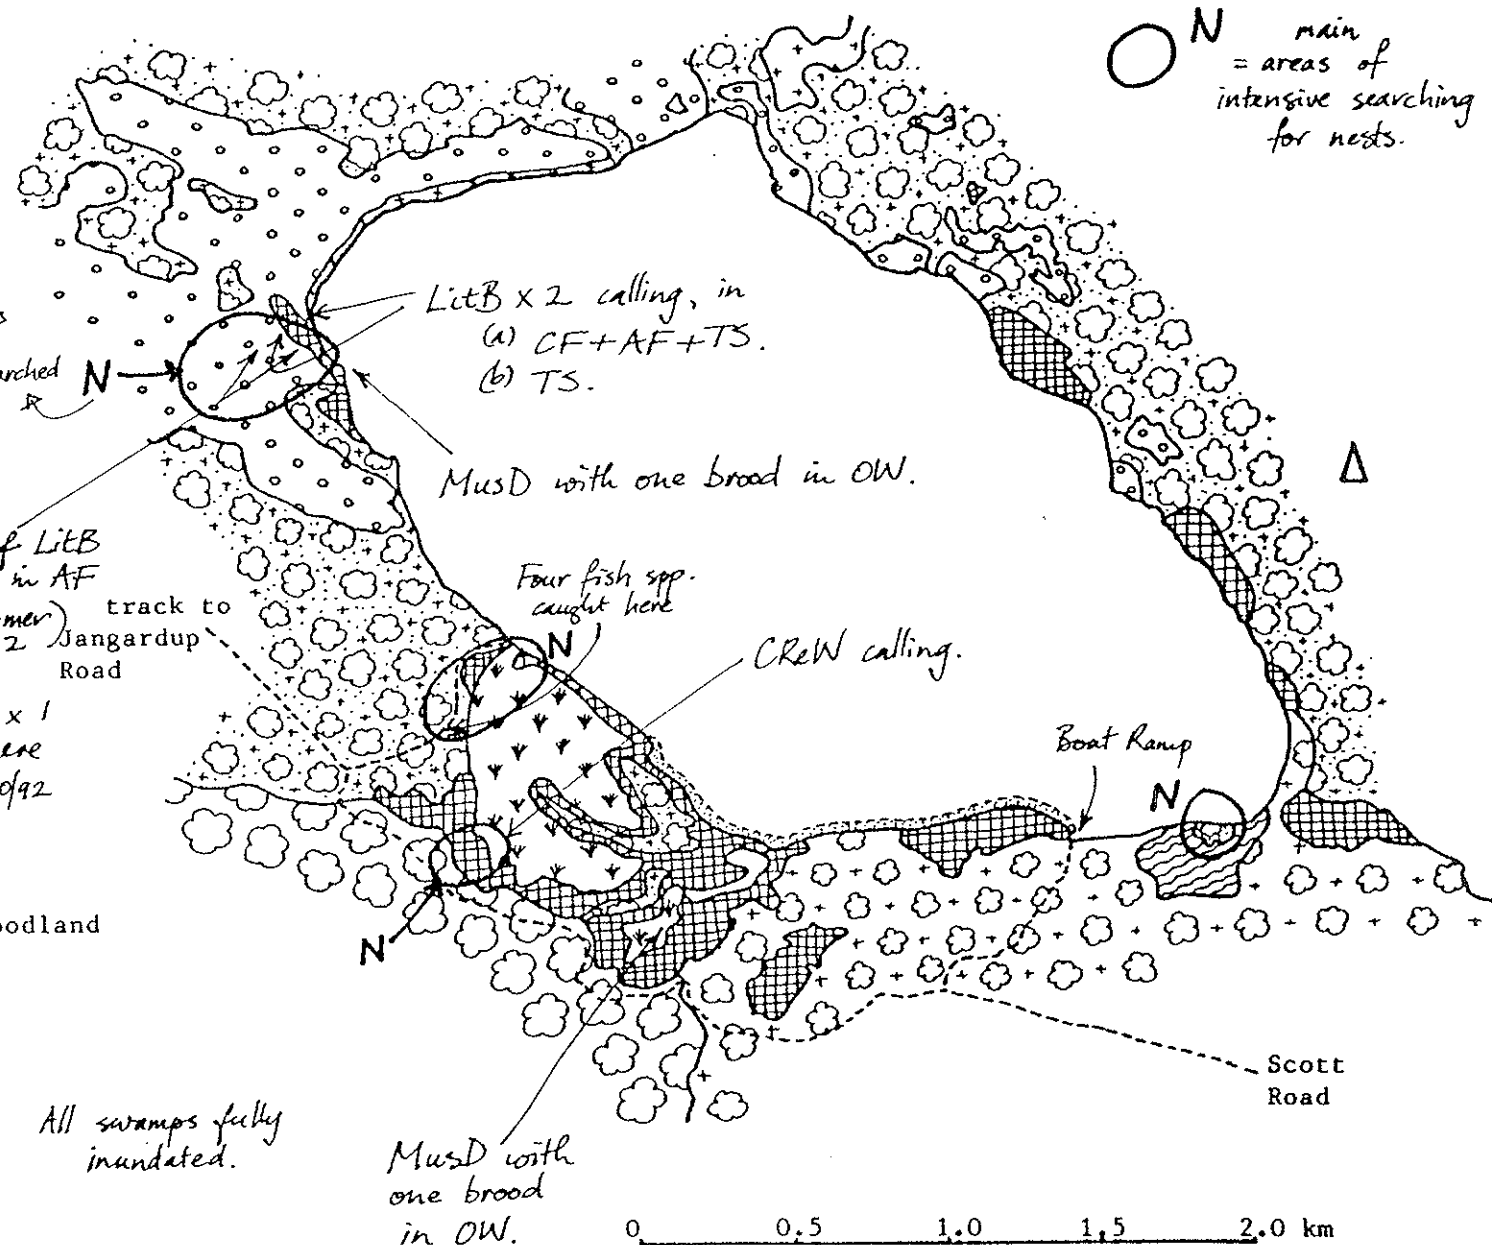 N main
= areas of
intensive searching
for nests.
LitB x 2 calling, in
(a) CF+AF+TS.
(b) TS.
N
MusD with one brood in OW.
LitB
in AF
track to
Jangardup
Road
2
x 1
Four fish spp.
caught here
N
CReW calling.
Boat Ramp
N
N
Scott
Road
All swamps fully
inundated.
MusD with
one brood
in OW.
0 0.5 1.0 1.5 2.0 km